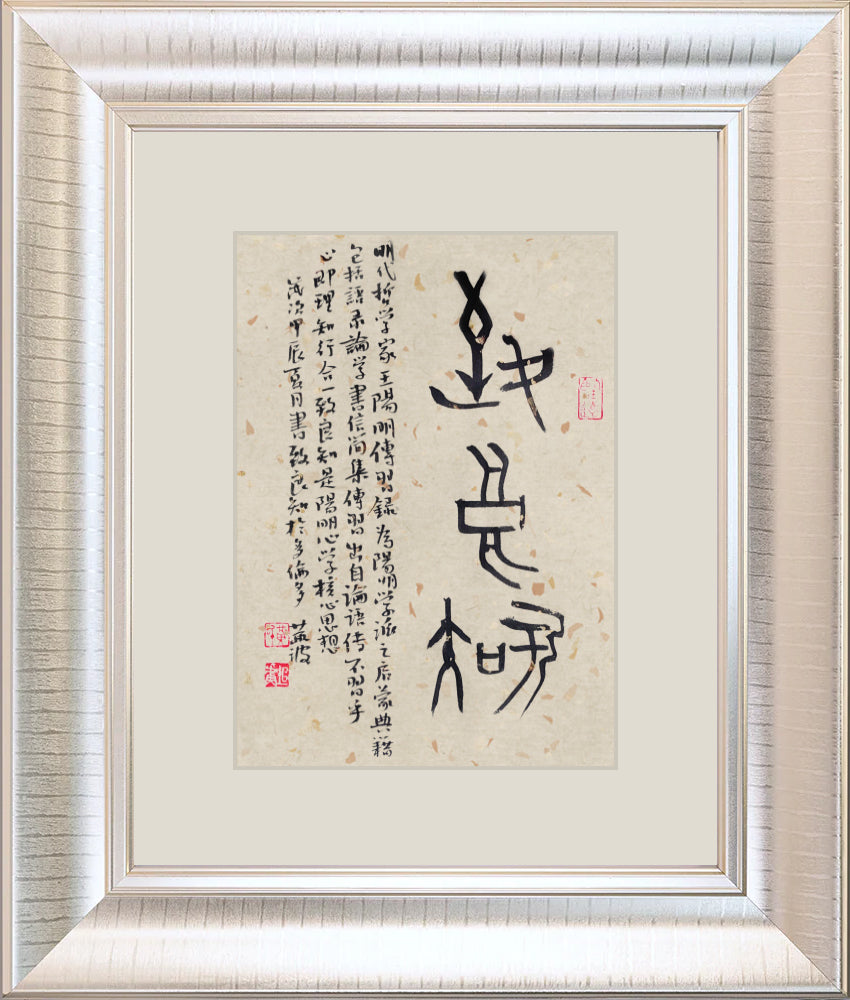 致良知
明代哲学家王陽明傳習録为陽明学派之启蒙典籍
包括語录論学書信简集傳習出自論语传不習乎
心即理知行合一致良知是陽明心学核心思想
歲次甲辰夏月書致良知於多倫多